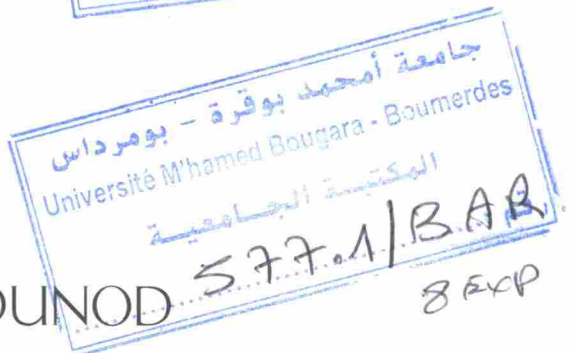 جامعة أمحمد بوقرة - بومرداس
Université M'hamed Bougara - Boumerdes
المكتبة الجامعية
رقم 577.1/BAR
8 EXP
OUNOD